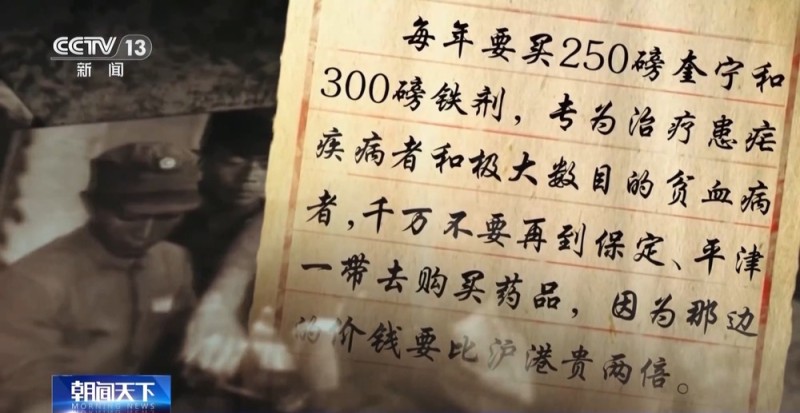 CCTV 13
新闻
每年要买250磅奎宁和
300磅铁剂，专为治疗患疟
疾病者和极大数目的贫血病
者，千万不要再到保定、平津
一带去购买药品，因为那边
的价钱要比沪港贵两倍。
朝闻天下
MORNING NEWS